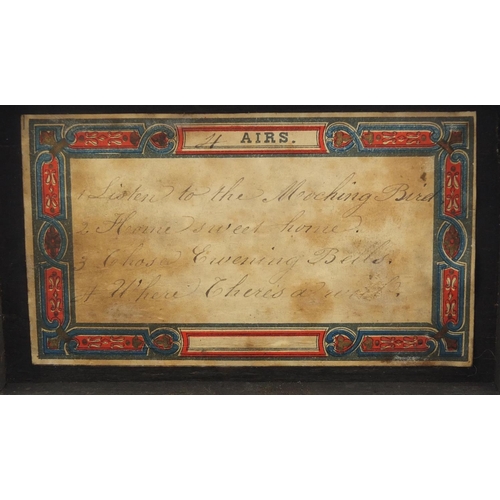 4 AIRS.
1 Listen to the Mocking Bird
2. Home sweet home.
3 Chase Ewening Bells.
4 Where Theres a will.